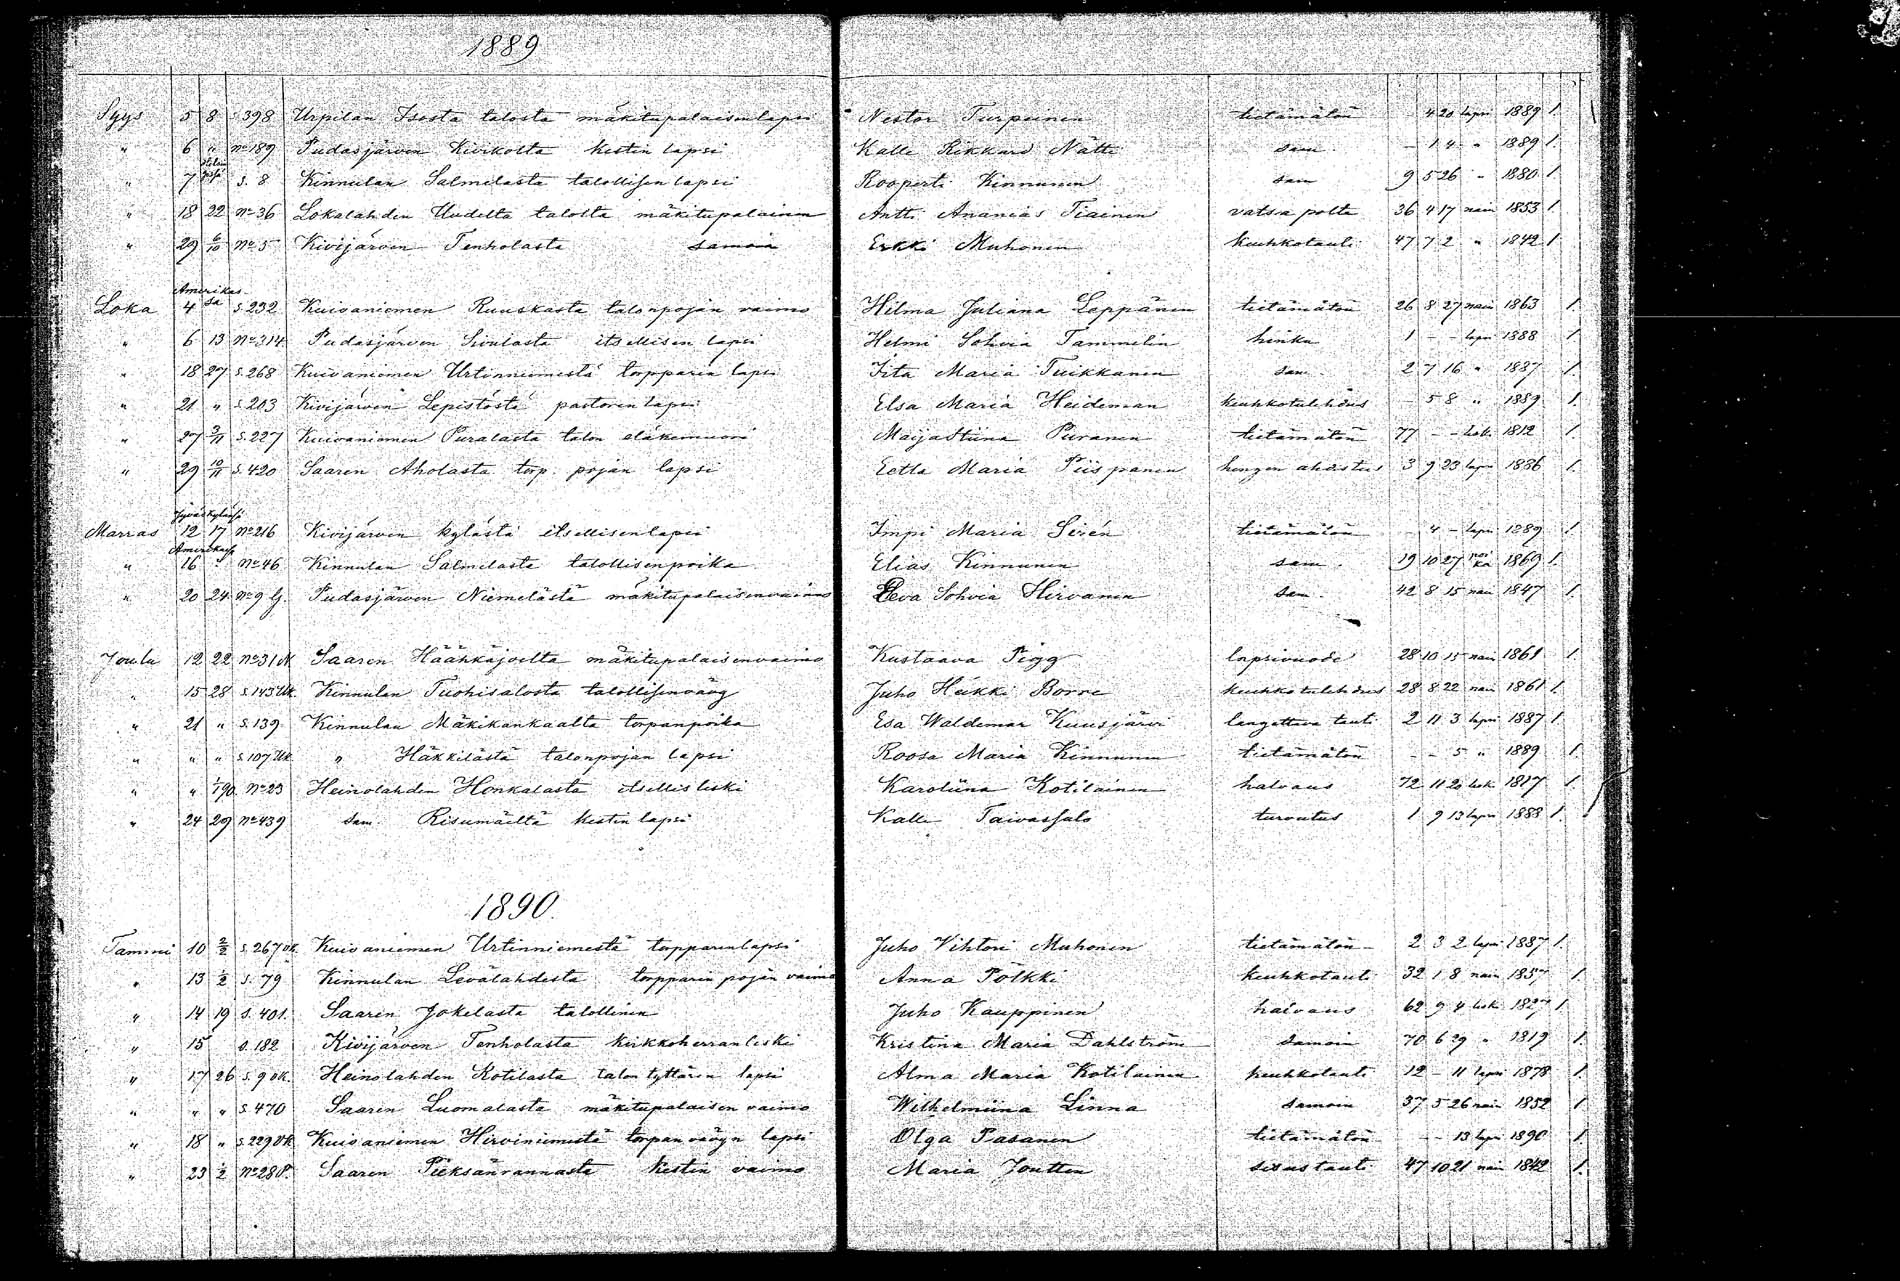 1889
Syys 5 8 s. 398 Urpilan Isosta talosta mäkitupalaisen lapsi Nestor Turpeinen tietämätön - 4 20 lapsi 1889 1.
" 6 " No 189 Pudasjärven Kivikolta kestin lapsi Kalle Rikkard Nätti sam. - 1 4 " 1889 1.
" 7 s. 8 Kinnulan Salmelasta talollisen lapsi Rooperti Kinnunen sam 9 5 26 " 1880 1.
" 18 22 No 36 Lokalahden Uudelta talolta mäkitupalainen Antti Ananias Tiainen vatsa polte 36 4 17 nain 1853 1.
" 29 6/10 No 5 Kivijärven Tenholasta samoin Erkki Muhonen keuhkotauti 47 7 2 " 1842 1
Amerikassa
Loka 4 s. 232 Kuivaniemen Ruuskasta talonpojan vaimo Hilma Juliana Leppänen tietämätön 26 8 27 nain 1863 1.
" 6 13 No 314 Pudasjärven Sivulasta itsellisen lapsi Helmi Sohvia Tammelin hinku 1 - - lapsi 1888 1.
" 18 27 s. 268 Kuivaniemen Urtinniemestä torpparin lapsi Iita Maria Tuikkanen sam. 2 7 16 " 1887 1.
" 21 " s. 203 Kivijärven Lepistöstä pastorin lapsi Elsa Maria Heideman keuhkotulehdus - 5 8 " 1889 1
" 27 3/11 s. 227 Kuivaniemen Puralasta talon eläkemuori Maija Stiina Puranen tietämätön 77 - - lesk. 1812 1.
" 29 10/11 s. 420 Saaren Aholasta torp. pojan lapsi Eetla Maria Piispanen hengen ahdistus 3 9 23 lapsi 1886 1.
Jyväskylässä
Marras 12 17 No 216 Kivijärven kylästä itsellisen lapsi Impi Maria Sirén tietämätön - 4 - lapsi 1889 1
Amerikassa
" 16 " No 46 Kinnulan Salmelasta talollisen poika Elias Kinnunen sam. 19 10 27 poika 1869 1.
" 20 24 No 9 Pudasjärven Niemelästä mäkitupalaisen vaimo Eeva Sohvia Hirvonen sam. 42 8 15 nain 1847 1.
Joulu 12 22 No 31 N. Saaren Häähkäjoelta mäkitupalaisen vaimo Kustaava Pigg lapsivuode 28 10 15 nain 1861 1.
" 15 28 s. 143 Uk. Kinnulan Tuohisalosta talollisen vävy Juho Heikki Borre keuhkotulehdus 28 8 22 nain 1861 1.
" 21 " s. 139 Kinnulan Mäkikankaalta torpan poika Esa Waldemar Kuusjärvi langettava tauti 2 11 3 lapsi 1887 1.
" " " s. 107 Uk. " Häkkilästä talonpojan lapsi Roosa Maria Kinnunen tietämätön - - 5 " 1889 1.
" " 1/1 90. No 23 Heinolahden Honkalasta itsellis leski Karoliina Kotilainen halvaus 72 11 20 lesk. 1817 1.
" 24 29 No 439 sam. Risumäeltä kestin lapsi Kalle Taivassalo turvotus 1 9 13 lapsi 1888 1.
1890.
Tammi 10 2/2 s. 267 Uk. Kuivaniemen Urtinniemestä torpparin lapsi Juho Vihtori Muhonen tietämätön 2 3 2 lapsi 1887 1.
" 13 2 s. 79 Kinnulan Levälahdesta torpparin pojan vaimo Anna Pölkki keuhkotauti 32 1 8 nain 1857 1.
" 14 19 s. 401. Saaren Jokelasta talollinen Juho Kauppinen halvaus 62 9 4 lesk. 1827 1.
" 15 s. 182 Kivijärven Tenholasta kirkkoherran leski Kristina Maria Dahlström samoin 70 6 29 " 1819 1.
" 17 26 s. 9 Uk. Heinolahden Kotilasta talon tyttären lapsi Alma Maria Kotilainen keuhkotauti 12 - 11 lapsi 1878 1.
" " " s. 470 Saaren Luomalasta mäkitupalaisen vaimo Wilhelmiina Linna samoin 37 5 26 nain 1852 1.
" 18 " s. 229 Uk. Kuivaniemen Hirviniemestä torpan vävyn lapsi Olga Pasanen tietämätön - - 13 lapsi 1890 1.
" 23 2 No 28 P. Saaren Pieksänrannasta kestin vaimo Maria Joutten sisustauti 47 10 21 nain 1842 1.